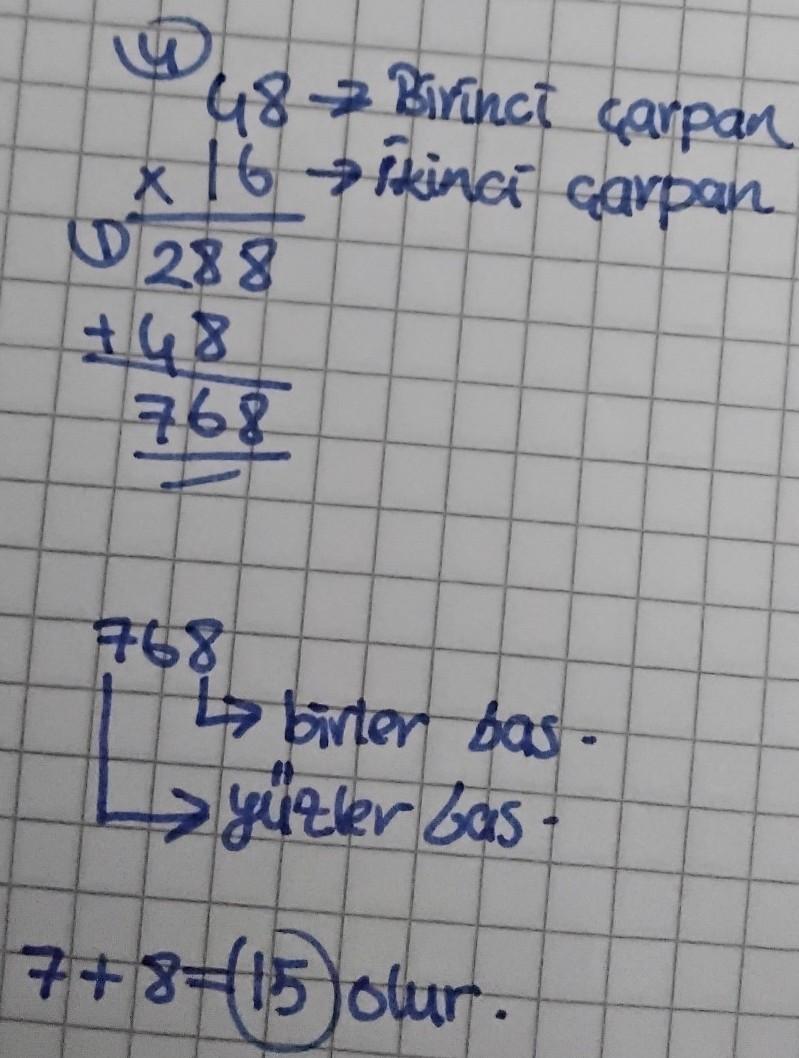 4
48 → Birinci çarpan
x 16 → İkinci çarpan
1 288
+48
768
768
→ birler bas.
→ yüzler bas.
7+8=15 olur.